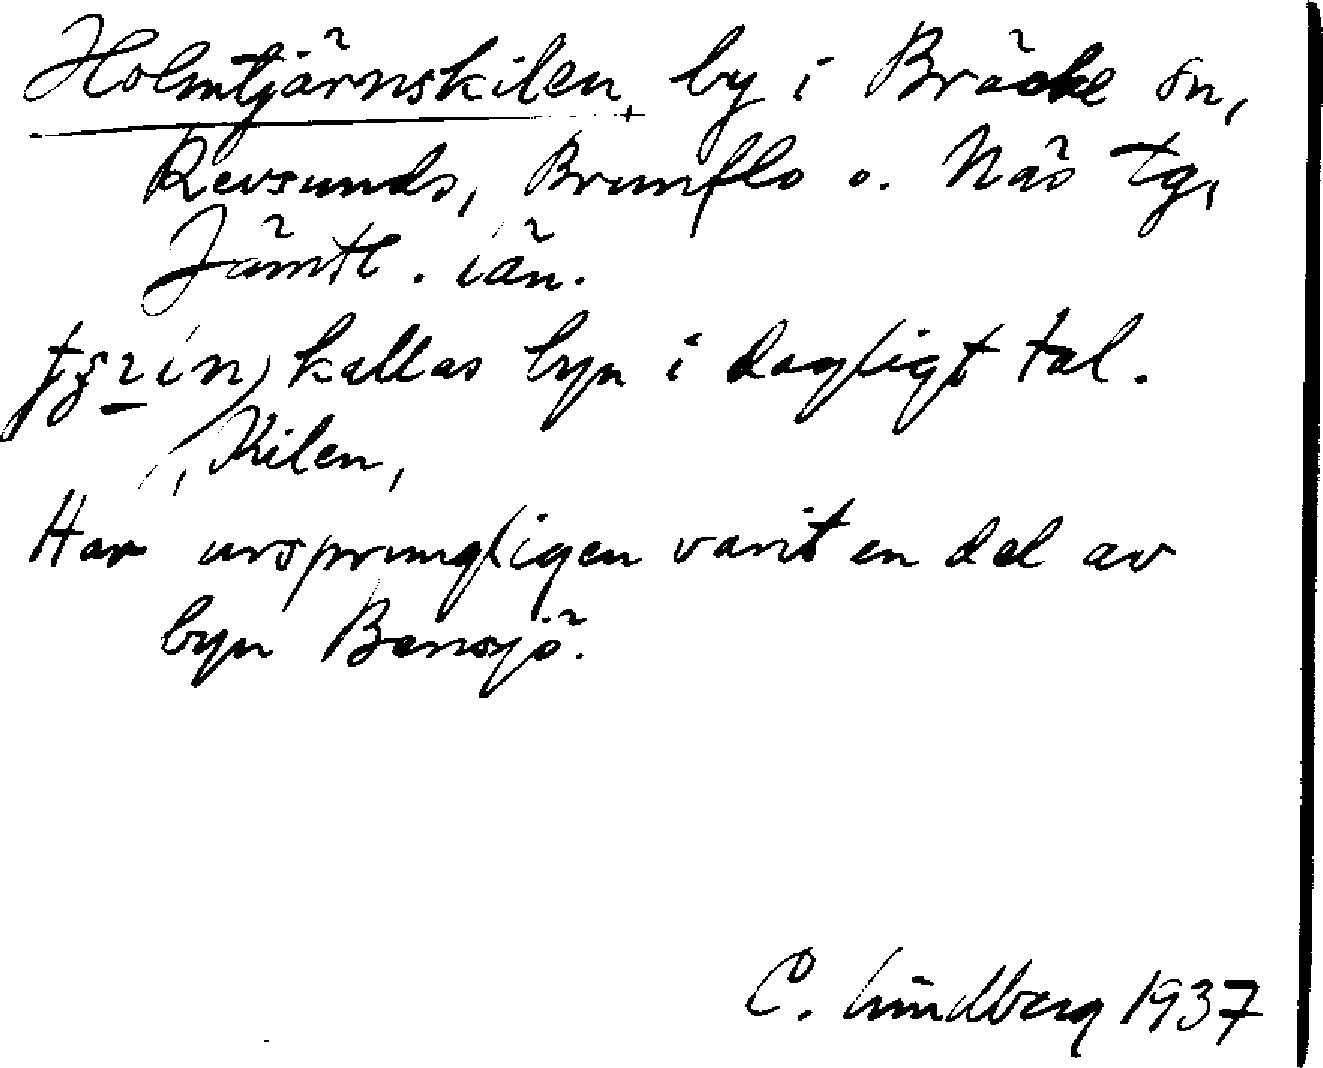 Holmtjärnskilen, by i Bräcke sn,
Revsunds, Brunflo o. Näs tg,
Jämtl. län.
kallas byn i dagligt tal.
, Kilen,
Har ursprungligen varit en del av
byn Bensjö.
C. Lindberg 1937